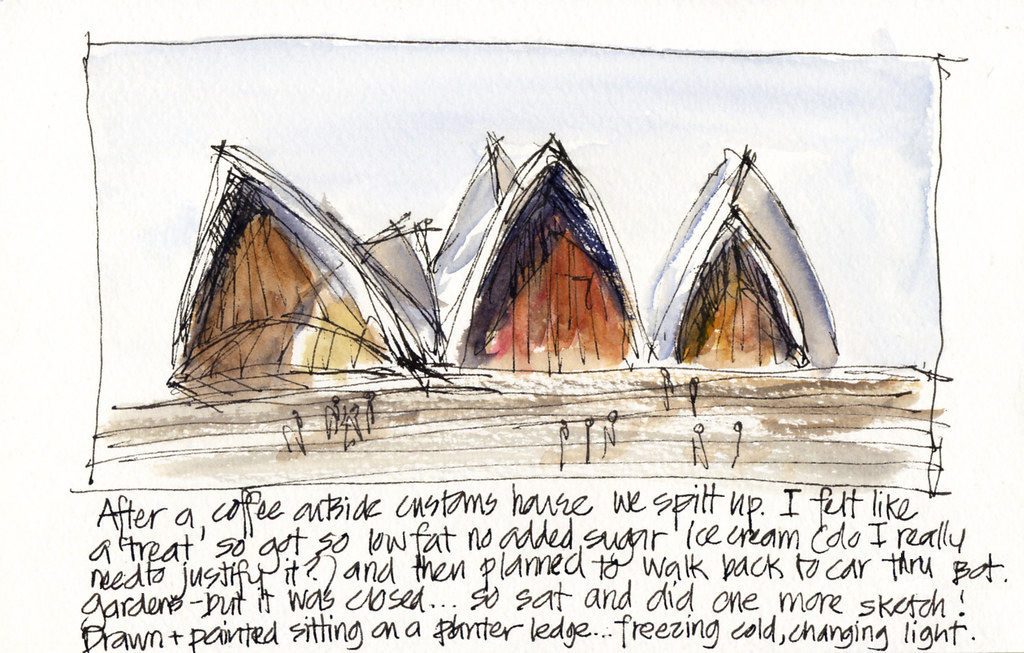 After a coffee outside customs house we split up. I felt like
a 'treat' so got so lowfat no added sugar ice cream (do I really
need to justify it?) and then planned to walk back to car thru Bot.
Gardens - but it was closed... so sat and did one more sketch!
Drawn + painted sitting on a planter ledge... freezing cold, changing light.